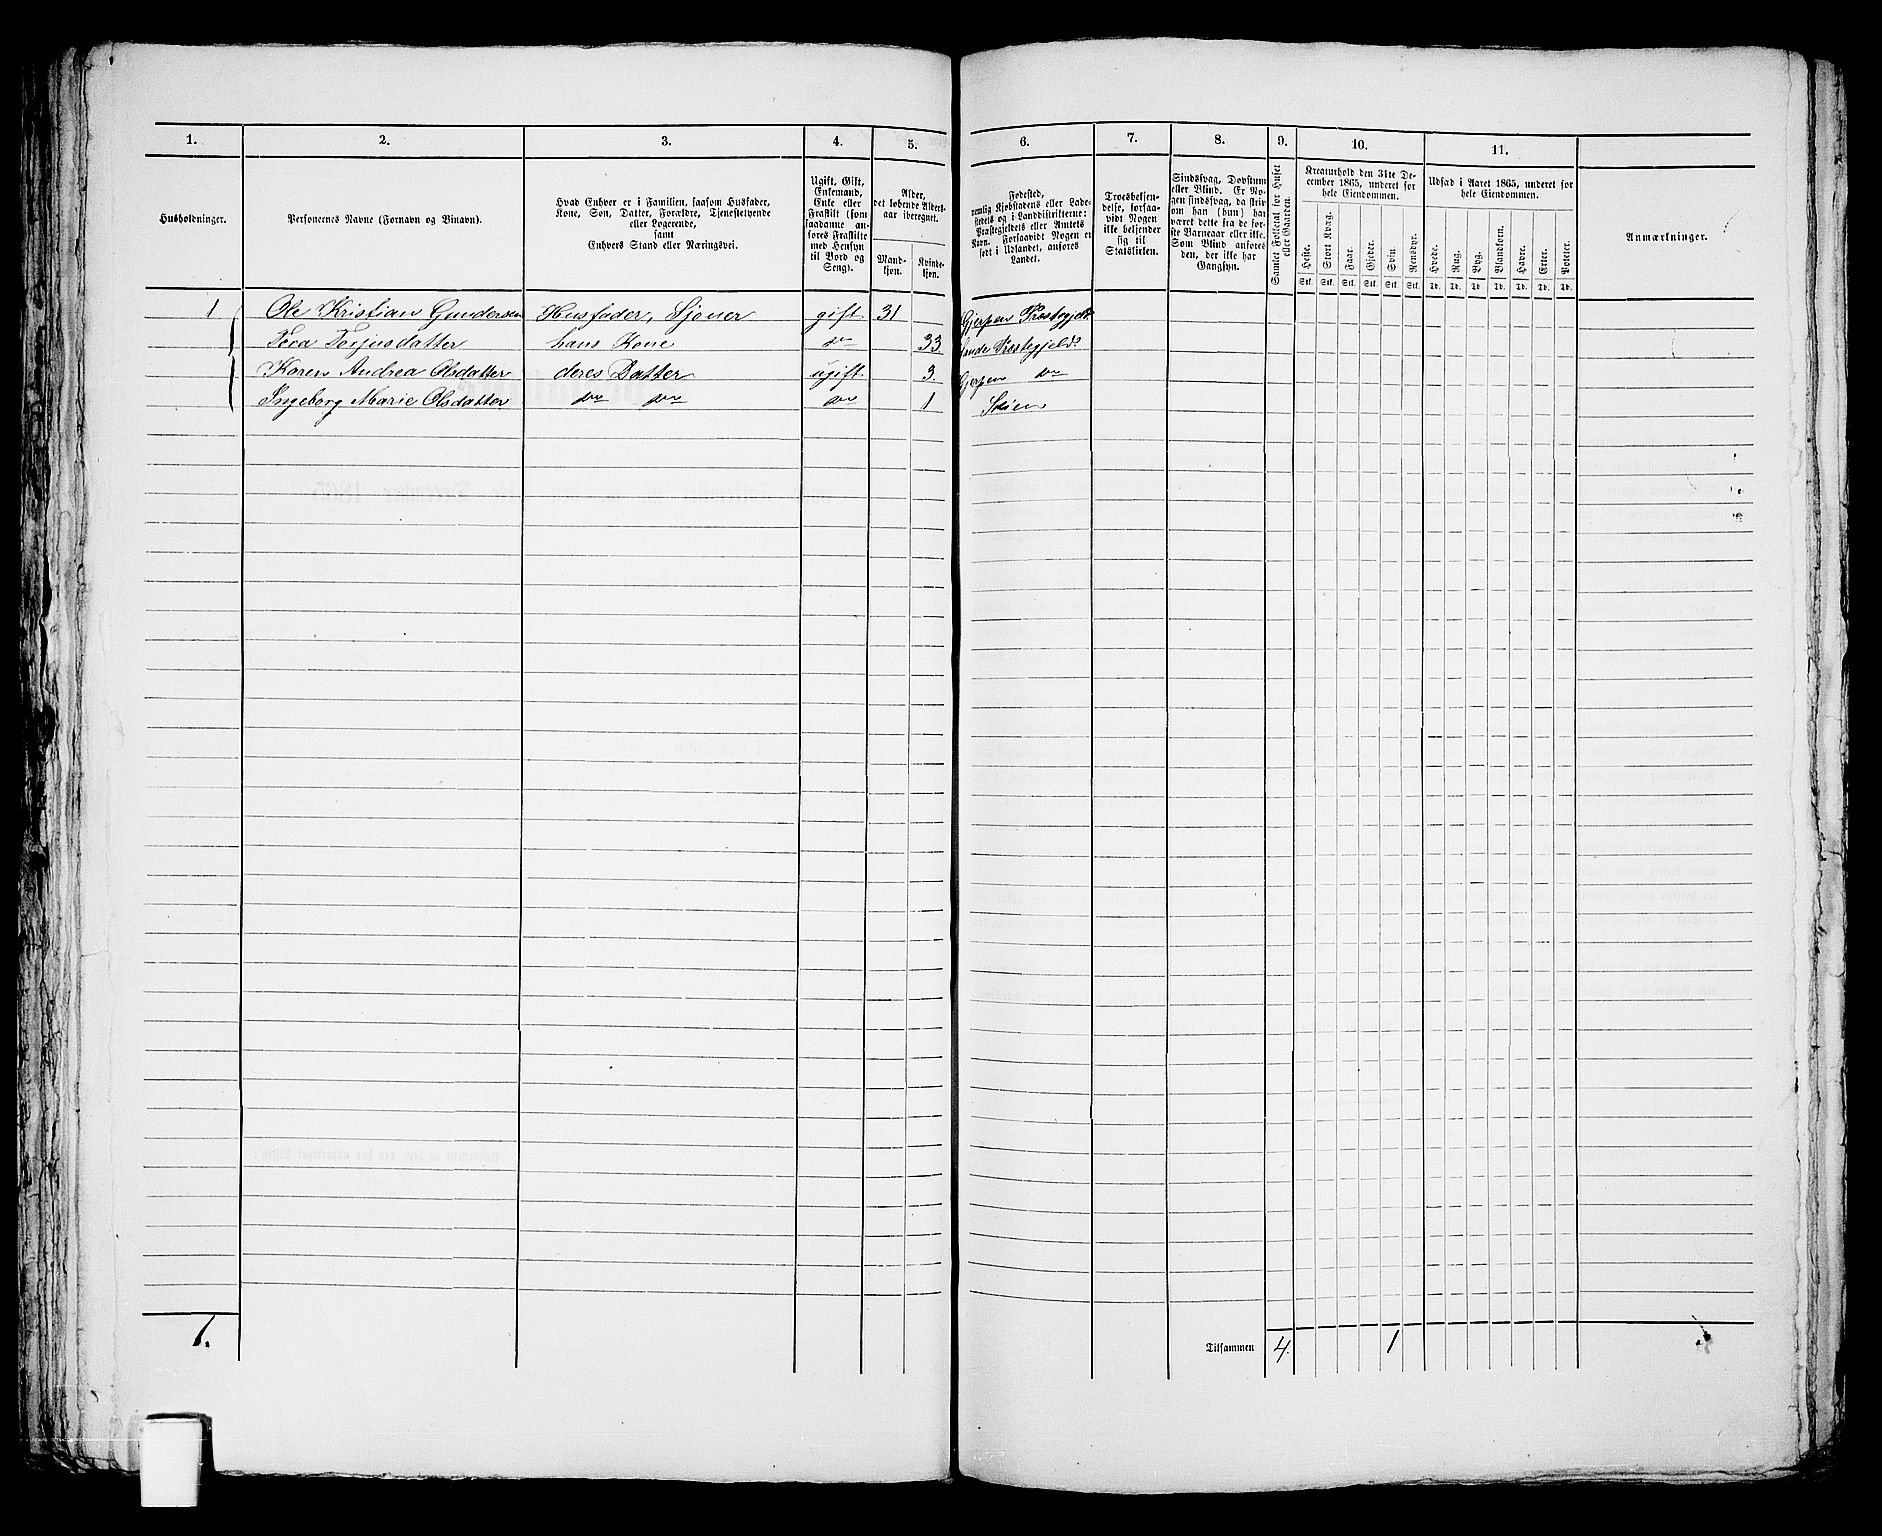 1. 2. 3. 4. 5. 6. 7. 8. 9. 10. 11.
Husholdninger.
Personernes Navne (Fornavn og Binavn).
Hvad Enhver er i Familien, saasom Husfader,
Kone, Søn, Datter, Forældre, Tjenestetyende
eller Logerende,
samt
Enhvers Stand eller Næringsvei.
Ugift, Gift,
Enkemand,
Enke eller
Fraskilt (som
saadanne an-
føres Fraskilte
med Hensyn
til Bord og
Seng).
Alder,
det løbende Alders-
aar iberegnet.
Mand-
kjøn.
Kvinde-
kjøn.
Fødested,
nemlig Kjøbstadens eller Lade-
stedets og i Landdistrikterne:
Præstegjeldets eller Amtets
Navn. Forsaavidt Nogen er
født i Udlandet, anføres
Landet.
Troesbekjen-
delse, forsaa-
vidt Nogen
ikke bekjender
sig til
Statskirken.
Sindssvag, Døvstum
eller Blind. Er No-
gen sindssvag, da skriv
om han (hun) har
været dette fra de før-
ste Barneaar eller ikke.
Som Blind anføres
den, der ikke har
Gangsyn.
Samlet Folketal for Huset
eller Gaarden.
Kreaturhold den 31te De-
cember 1865, underet for
hele Eiendommen.
Heste. Stort Kvæg. Faar. Gjeder. Svin. Rensdyr.
Stk. Stk. Stk. Stk. Stk. Stk.
Udsæd i Aaret 1865, underet for
hele Eiendommen.
Hvede. Rug. Byg. Blandkorn. Havre. Erter. Poteter.
Td. Td. Td. Td. Td. Td. Td.
Anmærkninger.
1 Ole Kristian Gundersen Husfader, Sjouer gift 31 Gjerpen Præstegjeld
Tora Torjusdatter hans Kone do 33 Sande Præstegjeld
Karen Andrea Olsdatter deres Datter ugift 3. Gjerpen do
Ingeborg Marie Olsdatter do do do 1 Skien
1. Tilsammen 4. 1